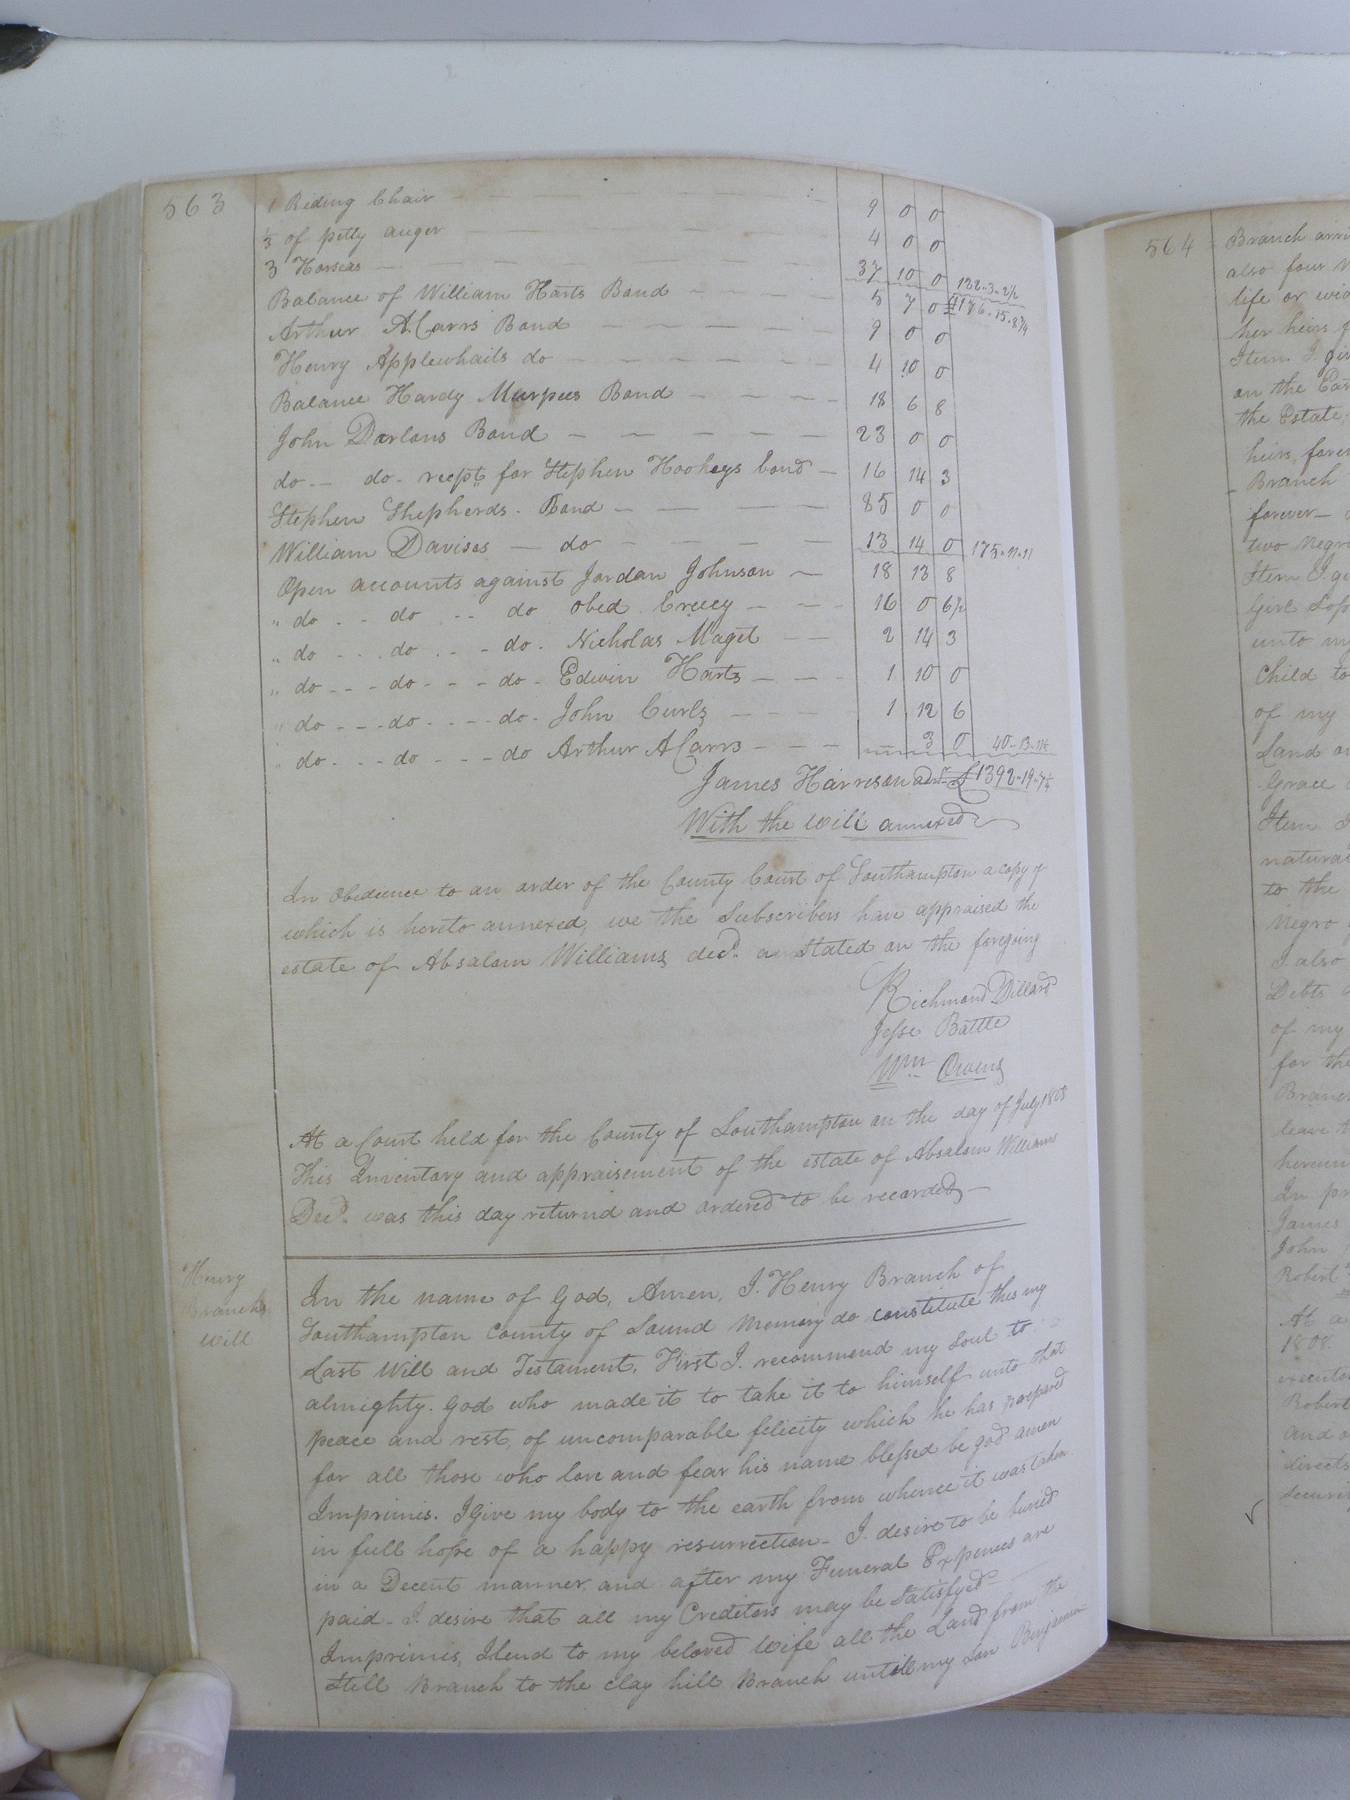 563
1 Riding Chair — — — — — 9 0 0
1/3 of pitty auger — — — — 4 0 0
3 Horses — — — — 37 10 0 132-3-2 1/2
Balance of William Harts Bond — — — — 5 7 0 £1176-15-8 3/4
Arthur A Carrs Bond — — — — 9 0 0
Henry Applewhaits do — — — — 4 10 0
Balance Hardy Murpees Bond — — — — 18 6 8
John Darlans Bond — — — — 23 0 0
do — do - recpt for Stephen Hookeys bond — 16 14 3
Stephen Shepherds - Bond — — — — 85 0 0
William Davises — do — — — — 13 14 0 175-11-11
Open accounts against Jordan Johnson — 18 13 8
" do - - do - - do Obed Creecy — — 16 0 6 1/2
" do - - do - - do - Nicholas Maget — — 2 14 3
" do - - - do - - - do - Edwin Harts — — 1 10 0
" do - - - do - - - do - John Curls — — — 1 12 6
" do - - - do - - - do Arthur A Carrs — — — 3 0 40-13-11 1/2
James Harrison adr £1392-19-7 1/4
With the will annexed
In Obedience to an order of the County Court of Southampton a copy of
which is hereto annexed, we the Subscribers have appraised the
estate of Absalom Williams decd. as Stated on the foregoing
Richmond Dillard
Jesse Battle
Wm Owens
At a Court held for the County of Southampton on the day of July 1808
This Inventory and appraisement of the estate of Absalom Williams
Decd. was this day returnd and ordered to be recorded —
Henry
Branchs
Will
In the name of God, Amen, I. Henry Branch of
Southampton County of Sound Memory do constitute this my
Last Will and Testament, First I. recommend my Soul to
almighty. God who made it to take it to himself unto that
peace and rest, of uncomparable felicity which he has prepared
for all those who love and fear his name blessed be god amen
Imprimis. I Give my body to the earth from whence it was taken
in full hope of a happy resurrection - I. desire to be buried
in a Decent manner and after my Funeral Expences are
paid - I. desire that all my Creditors may be Satisfyed -
Imprimis, I lend to my beloved wife all the Land from the
Still Branch to the clay hill Branch untill my Son Benjamin
564
Branch arri
also four
life or wid
her heirs
Item I. giv
on the Eas
the Estate,
heirs, forev
Branch
forever —
two Negro
Item I. gi
Girl
unto my
Child to
of my
Land
Grace
Item I
natural
to the
Negro
I also
Debts
of my
for the
Branch
leave
In pr
James
John
Robert
At a
1808.
executo
Robert
and
directs